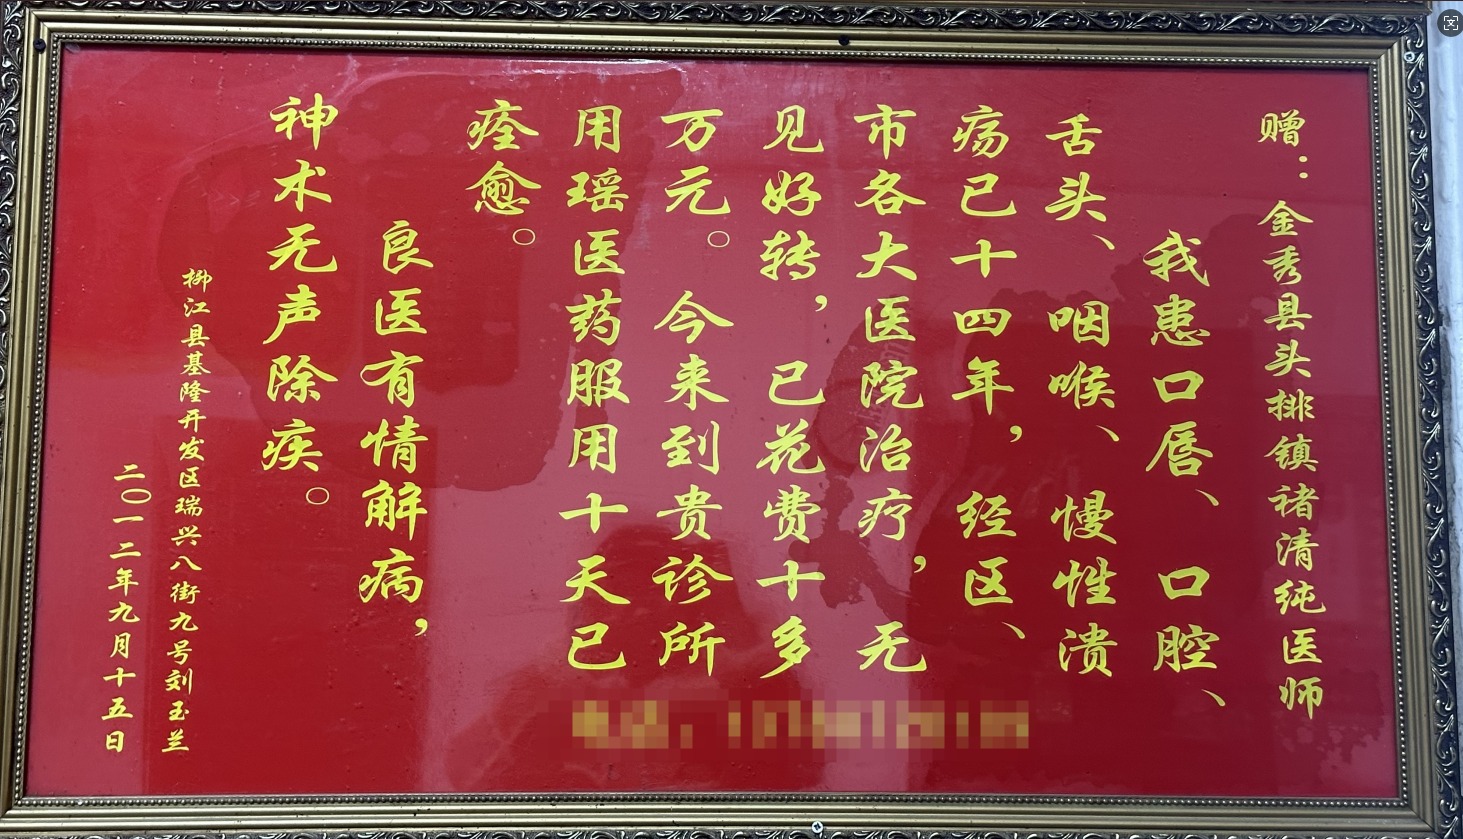 赠：金秀县头排镇禇清纯医师
我患口唇、口腔、
舌头、咽喉、慢性溃
疡已十四年，经区、
市各大医院治疗，无
见好转，已花费十多
万元。今来到贵诊所
用瑶医药服用十天已
痊愈。
良医有情解病，
神术无声除疾。
柳江县基隆开发区瑞兴八街九号刘玉兰
二〇一二年九月十五日